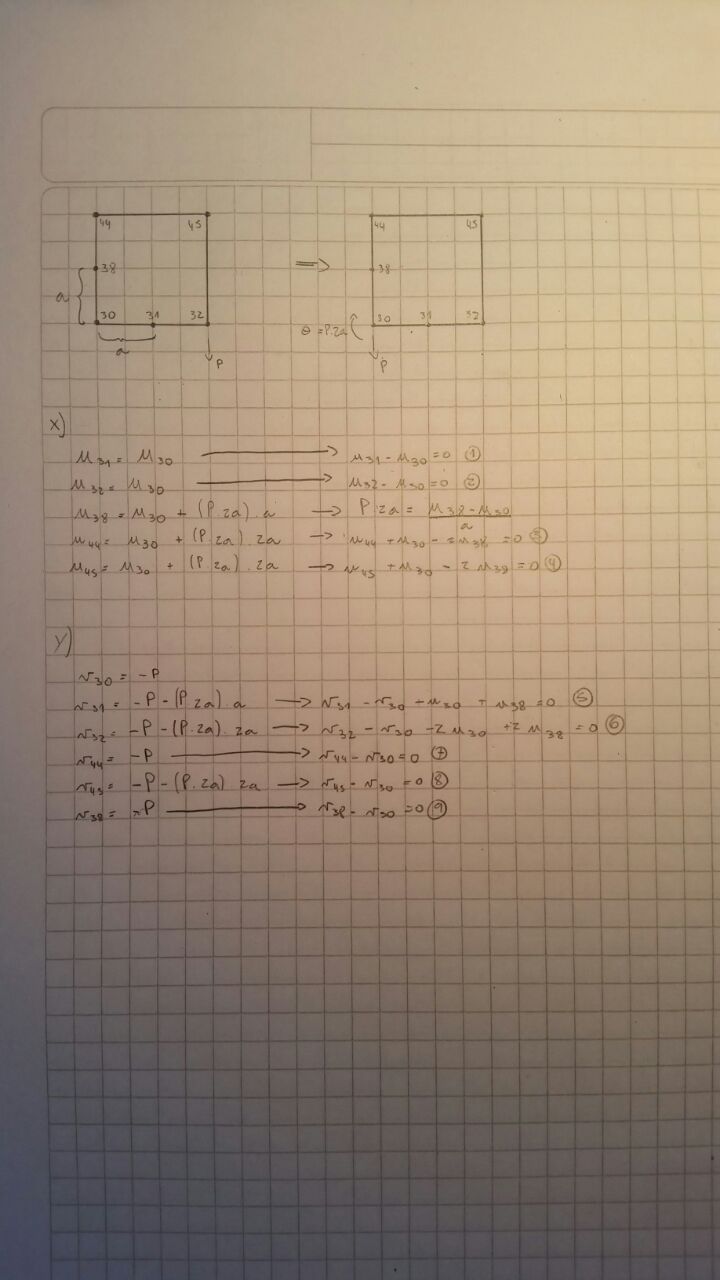 44 45 44 45
38 ⟹ 38
a
30 31 32 θ = P.2a 30 31 32
a P P
X)
u₃₁ = u₃₀ ⟶ u₃₁ - u₃₀ = 0 ①
u₃₂ = u₃₀ ⟶ u₃₂ - u₃₀ = 0 ②
u₃₈ = u₃₀ + (P.2a).a ⟶ P 2a = (u₃₈ - u₃₀)/a
u₄₄ = u₃₀ + (P.2a).2a ⟶ u₄₄ + u₃₀ - 2u₃₈ = 0 ③
u₄₅ = u₃₀ + (P.2a).2a ⟶ u₄₅ + u₃₀ - 2u₃₈ = 0 ④
Y)
v₃₀ = -P
v₃₁ = -P - (P.2a).a ⟶ v₃₁ - v₃₀ + u₃₀ + u₃₈ = 0 ⑤
v₃₂ = -P - (P.2a).2a ⟶ v₃₂ - v₃₀ - 2u₃₀ + 2u₃₈ = 0 ⑥
v₄₄ = -P ⟶ v₄₄ - v₃₀ = 0 ⑦
v₄₅ = -P - (P.2a) 2a ⟶ v₄₅ - v₃₀ = 0 ⑧
v₃₈ = -P ⟶ v₃₈ - v₃₀ = 0 ⑨